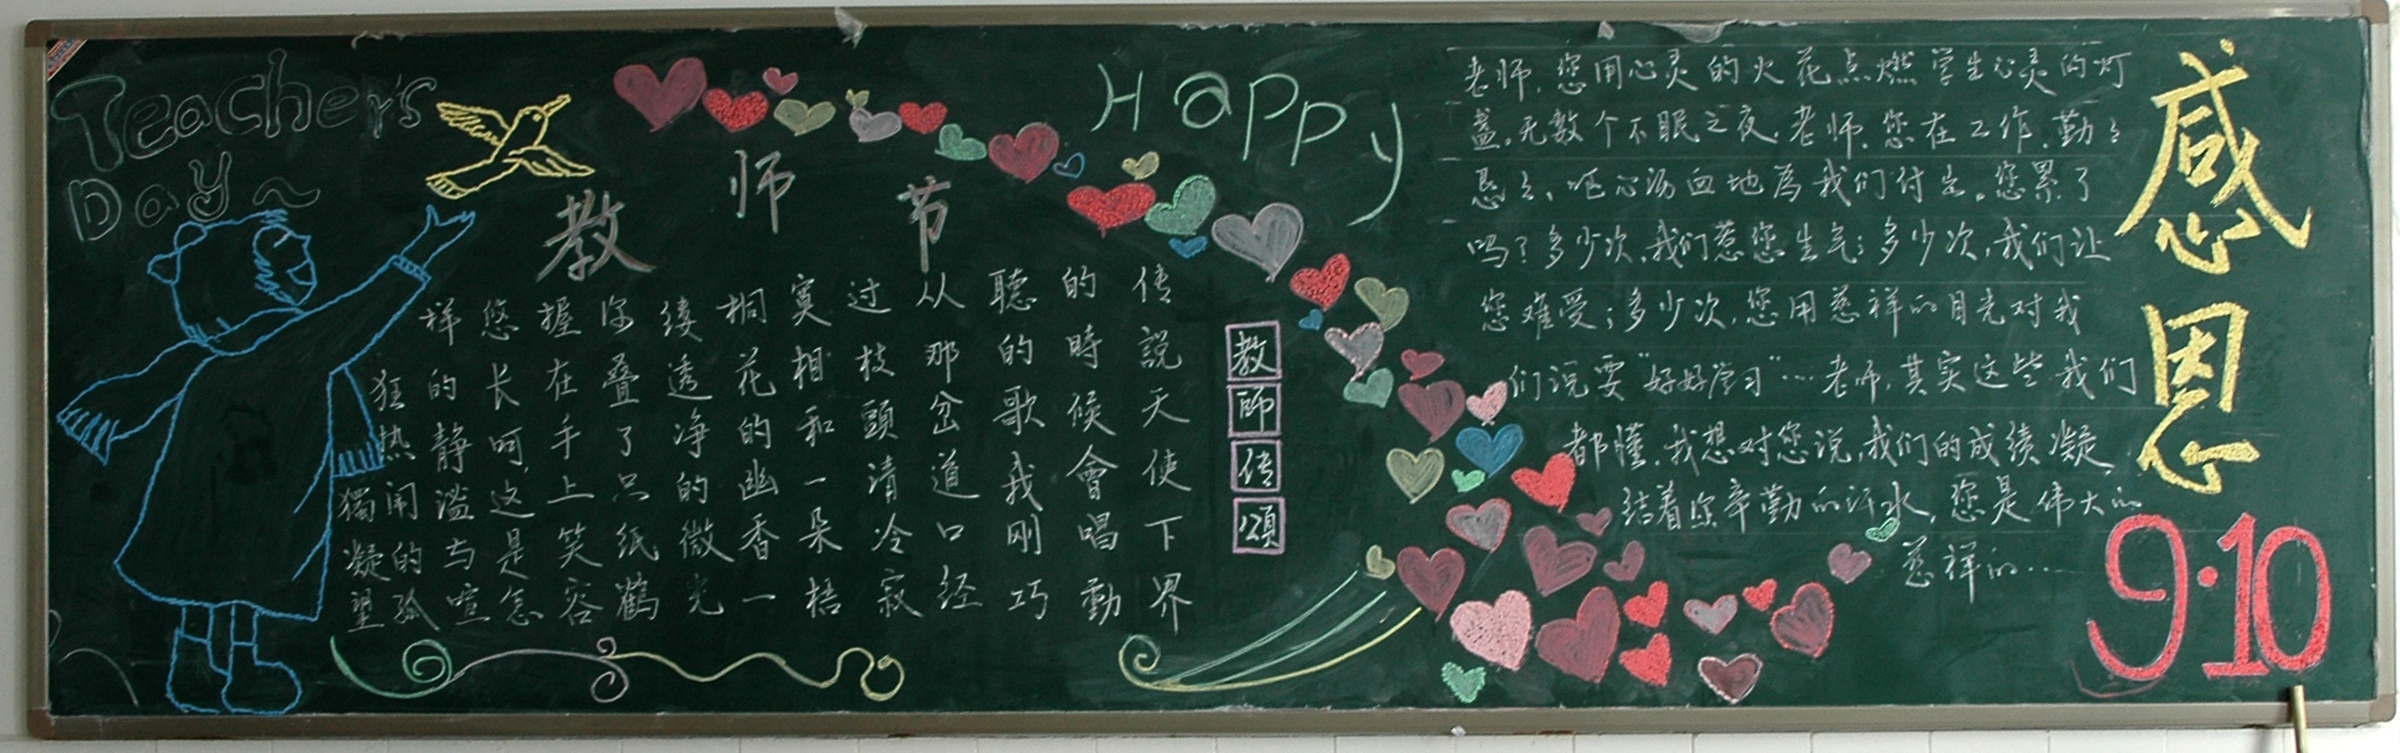 Teacher's
Day~
Happy
教师节
教師传頌
传說天使下界
的時候會唱動
聽的歌我刚巧
从那岔道口经
过枝頭清冷寂
寞相和一朵梧
桐花的幽香一
缕透净的微光
你叠了只纸鶴
握在手上笑容
悠长呵,这是怎
样的静滥与喧
狂热闹的孤
獨凝望
老师,您用心灵的火花点燃学生心灵的灯
盏,无数个不眠之夜,老师,您在工作,勤々
恳々,呕心沥血地為我们付出。您累了
吗?多少次,我们惹您生气;多少次,我们让
您难受;多少次,您用慈祥的目光对我
们说要"好好学习"…老师,其实这些我们
都懂,我想对您说,我们的成绩凝
结着您辛勤的汗水,您是伟大的
慈祥的…
感恩
9·10